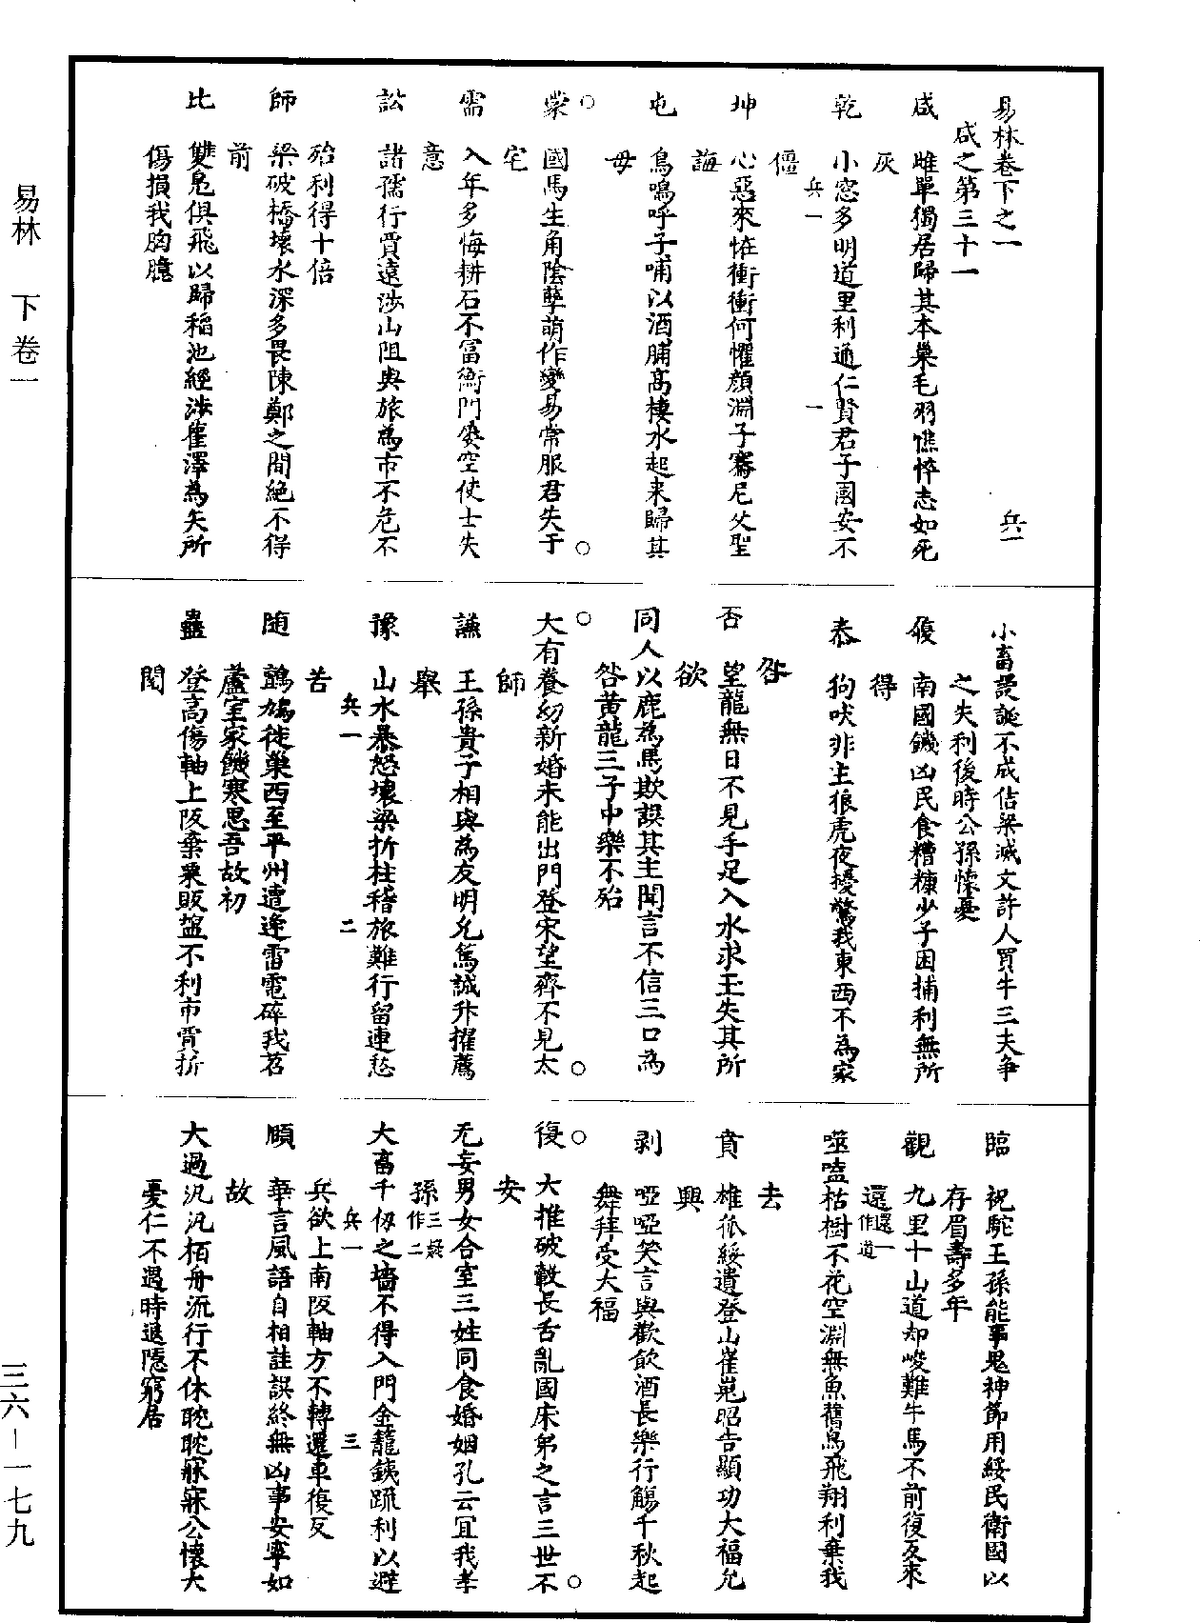 易林卷下之一
兵一
咸之第三十一
咸 雌單獨居歸其本巢毛羽憔悴志如死
灰
乾 小窓多明道里利通仁賢君子國安不
兵一 一
僵
坤 心惡來怪衝衝何懼顔淵子騫尼父聖
誨
屯 鳥鳴呼子哺以酒脯高棲水起来歸其
母
蒙 國馬生角陰孽萌作變易常服君失于
宅
需 入年多悔耕石不富衡門屡空使士失
意
訟 諸孺行賈遠涉山阻與旅為市不危不
殆利得十倍
師 梁破橋壊水深多畏陳鄭之間絶不得
前
比 雙鳬俱飛以歸稲池經涉雚澤為矢所
傷損我胸臆
小畜謾誕不成佶梁滅文許人買牛三夫争
之失利後時公孫懐憂
履 南國饑凶民食糟糠少子困捕利無所
得
泰 狗吠非主狼虎夜擾驚我東西不為家
咎
否 望龍無日不見手足入水求玉失其所
欲
同人以鹿為馬欺誤其主聞言不信三口為
咎黄龍三子中樂不殆
大有養幼新婚未能出門登宋望齊不見太
師
謙 王孫貴子相與為友明允篤誠升擢薦
舉
豫 山水暴怒壊梁折柱稽旅難行留連愁
兵一 二
苦
随 鷁鳩徙巢西至平州遭逢雷電碎我苕
蘆室家饑寒思吾故初
蠱 登高傷軸上阪棄粟販盐不利市賈折
閲
臨 祝駝王孫能事鬼神節用綏民衛國以
存眉壽多年
觀 九里十山道却峻難牛馬不前復反來
還還一作道
噬嗑枯樹不花空淵無魚舊鳥飛翔利棄我
去
賁 雄狐綏遺登山崔嵬昭告顯功大福允
興
剥 啞啞笑言與歡飲酒長樂行觴千秋起
舞拜受大福
復 大推破轂長舌亂國床笫之言三世不
安
无妄男女合室三姓同食婚姻孔云宜我孝
孫三疑作二
大畜千仭之墻不得入門金籠銕疏利以避
兵一 三
兵欲上南阪軸方不轉還車復反
頤 華言風語自相詿誤終無凶事安寧如
故
大過汎汎栢舟流行不休耿耿寤寐公懐大
憂仁不遇時退隠窮居
易林 下卷一
三六－一七九